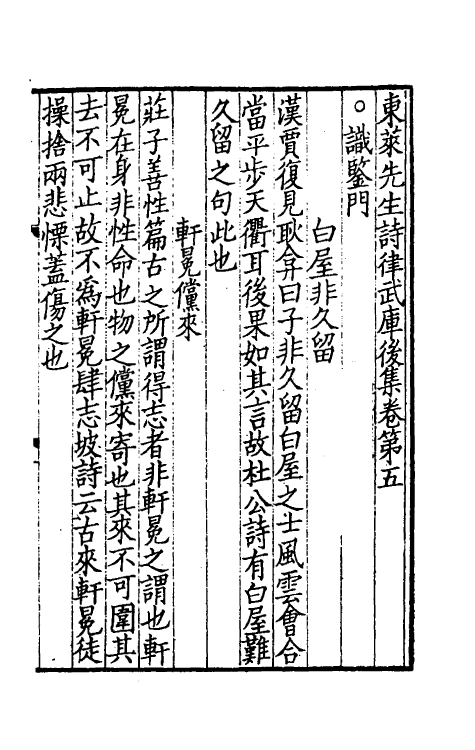 東萊先生詩律武庫後集卷第五
○識鑒門
白屋非久留
漢賈復見耿弇曰子非久留白屋之士風雲會合
當平步天衢耳後果如其言故杜公詩有白屋難
久留之句此也
軒冕儻來
莊子善性篇古之所謂得志者非軒冕之謂也軒
冕在身非性命也物之儻來寄也其來不可圉其
去不可止故不爲軒冕肆志坡詩云古來軒冕徒
操捨兩悲慄蓋傷之也